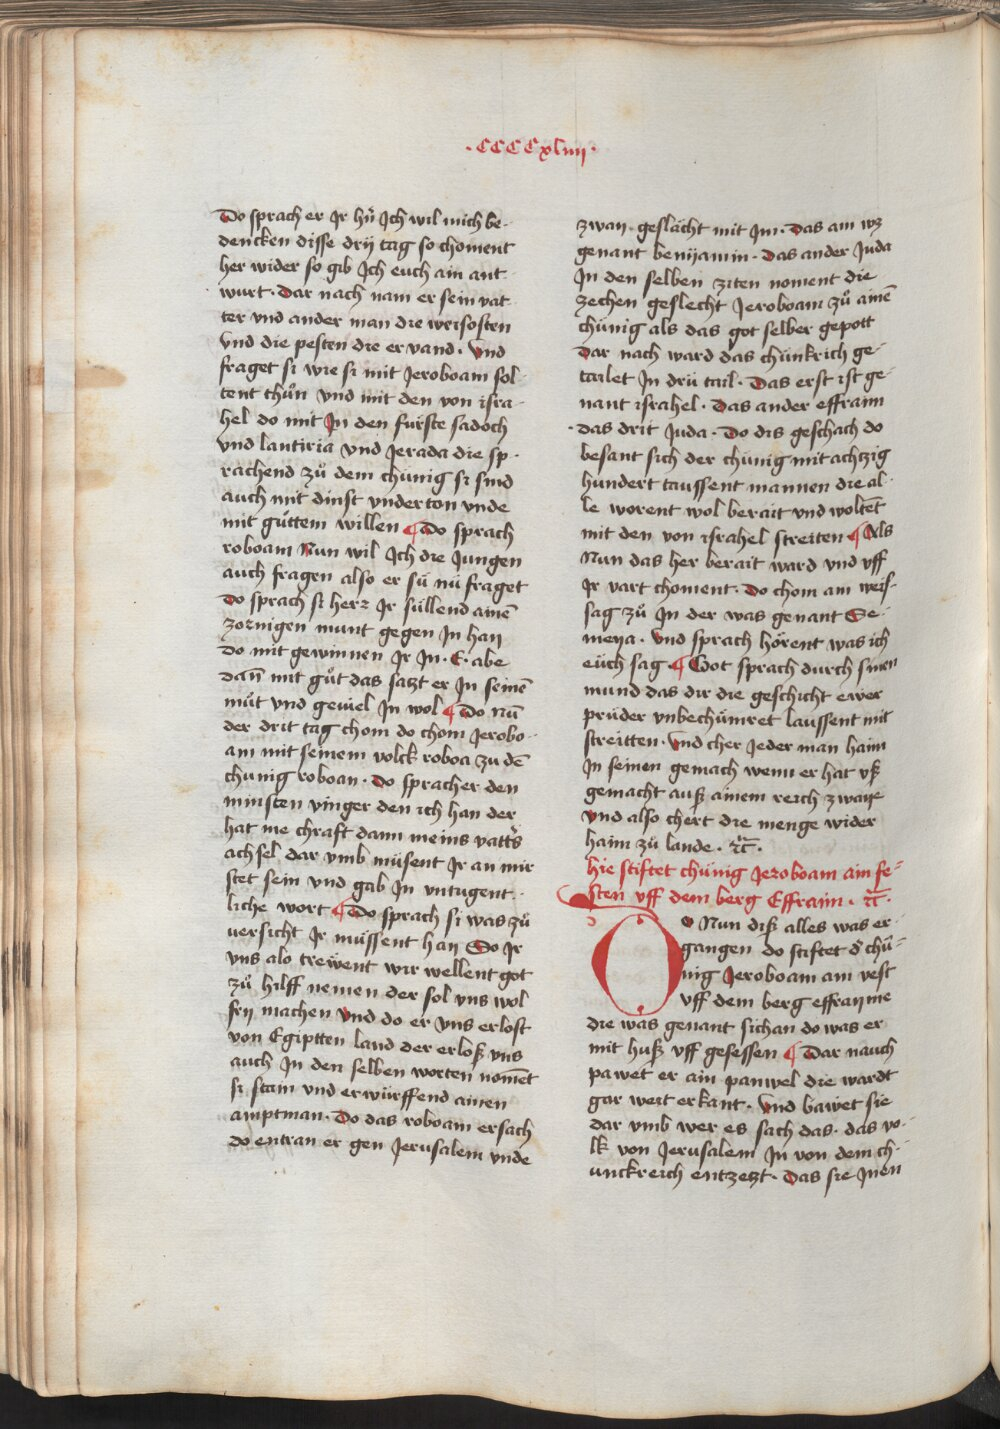 ·CCCCxliiij·
Do sprach er Jr hr̃ Jch wil mich be-
dencken disse drij tag so choment
her wider so gib Jch euch ain ant
wurt· Dar nach nam er sein vat
ter vnd ander man die weisosten
vnd die pesten die er vand· Vnd
fraget si wie si mit Jeroboam sol-
tent thůn vnd mit den von isra-
hel do mit Jn den fürste sadoch
vnd lantiria vnd Jerada die sp-
rachend zů dem chünig si sind
auch mit dinst vnderton vnde
mit gůttem willen ¶ Do sprach
roboam Nun wil Jch die Jungen
auch fragen also er sü nü fraget
Do sprach si herr Jr süllend ainē
zornigen munt gegen Jn han
Do mit gewinnen Jr Jn· E· abe
dañ mit gůt das satzt er Jn seinē
můt vnd geuiel Jn wol ¶ Do nū
der drit tag chom do chom Jerobo-
am mit seinem volck roboa zu dē
chunig roboan· Do sprach er den
minsten vinger den ich han der
hat me chraft dann meins vatt's
achsel dar vmb müsent Jr an mir
stet sein vnd gab Jn vntugent-
liche wort ¶ Do sprach si was zů
uersicht Jr müssent han So Jr
vns alo trewent wir wellent got
zů hilff nemen der sol vns wol
frij machen Vnd do er vns erlost
von Egiptten land der erloß vns
auch Jn den selben worten nomēt
si stain vnd erwürffend ainen
amptman· Do das roboam ersach
do entran er gen Jerusalem vnde
zwan· geslächt mit Jm· Das ain wz
genant benijamin· Das ander Juda
Jn den selben ziten noment die
zechen geslecht Jeroboam zů ainē
chünig als das got selber gepott
Dar nach ward das chünkrich ge-
tailet Jn drü tail· Das erst ist ge-
nant israhel· Das ander effraim
·das drit Juda· Do dis geschach do
besant sich der chünig mit achtzig
hundert taussent mannen die al-
le worent wol berait vnd woltēt
mit den von israhel streiten ¶ Als
Nun das her berait ward vnd vff
Jr vart choment· Do chom ain weis-
sag zů Jn der was genant Se-
meya· Vnd sprach hörent was ich
eüch sag ¶ Got sprach durch sinen
mund das dir die geschicht ewer
prüder vnbechümret laussent mit
streitten· Vnd cher Jeder man haim
Jn seinen gemach wenn er hat vß
gemacht auß ainem reich zwaye
Vnd also chert die menge wider
haim zů lande· ꝛc̄·
hie stiftet chünig Jeroboam ain fe-
sten vff dem berg Effraim· ꝛc̄·
Do Nun diß alles was er-
gangen do stiftet d' chü-
nig Jeroboam ain vest
vff dem berg effrayme
die was genant sichan do was er
mit huß vff gesessen ¶ Dar nauch
pawet er ain panwel die wardt
gar wert erkant· Vnd bawet sie
dar vmb wer es sach das· das vo-
lk von Jerusalem Jn von dem ch-
unckreich entzetzt· Das sie Jnen